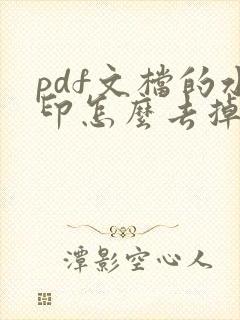 pdf文檔的水
印怎麼去掉
潭影空心人